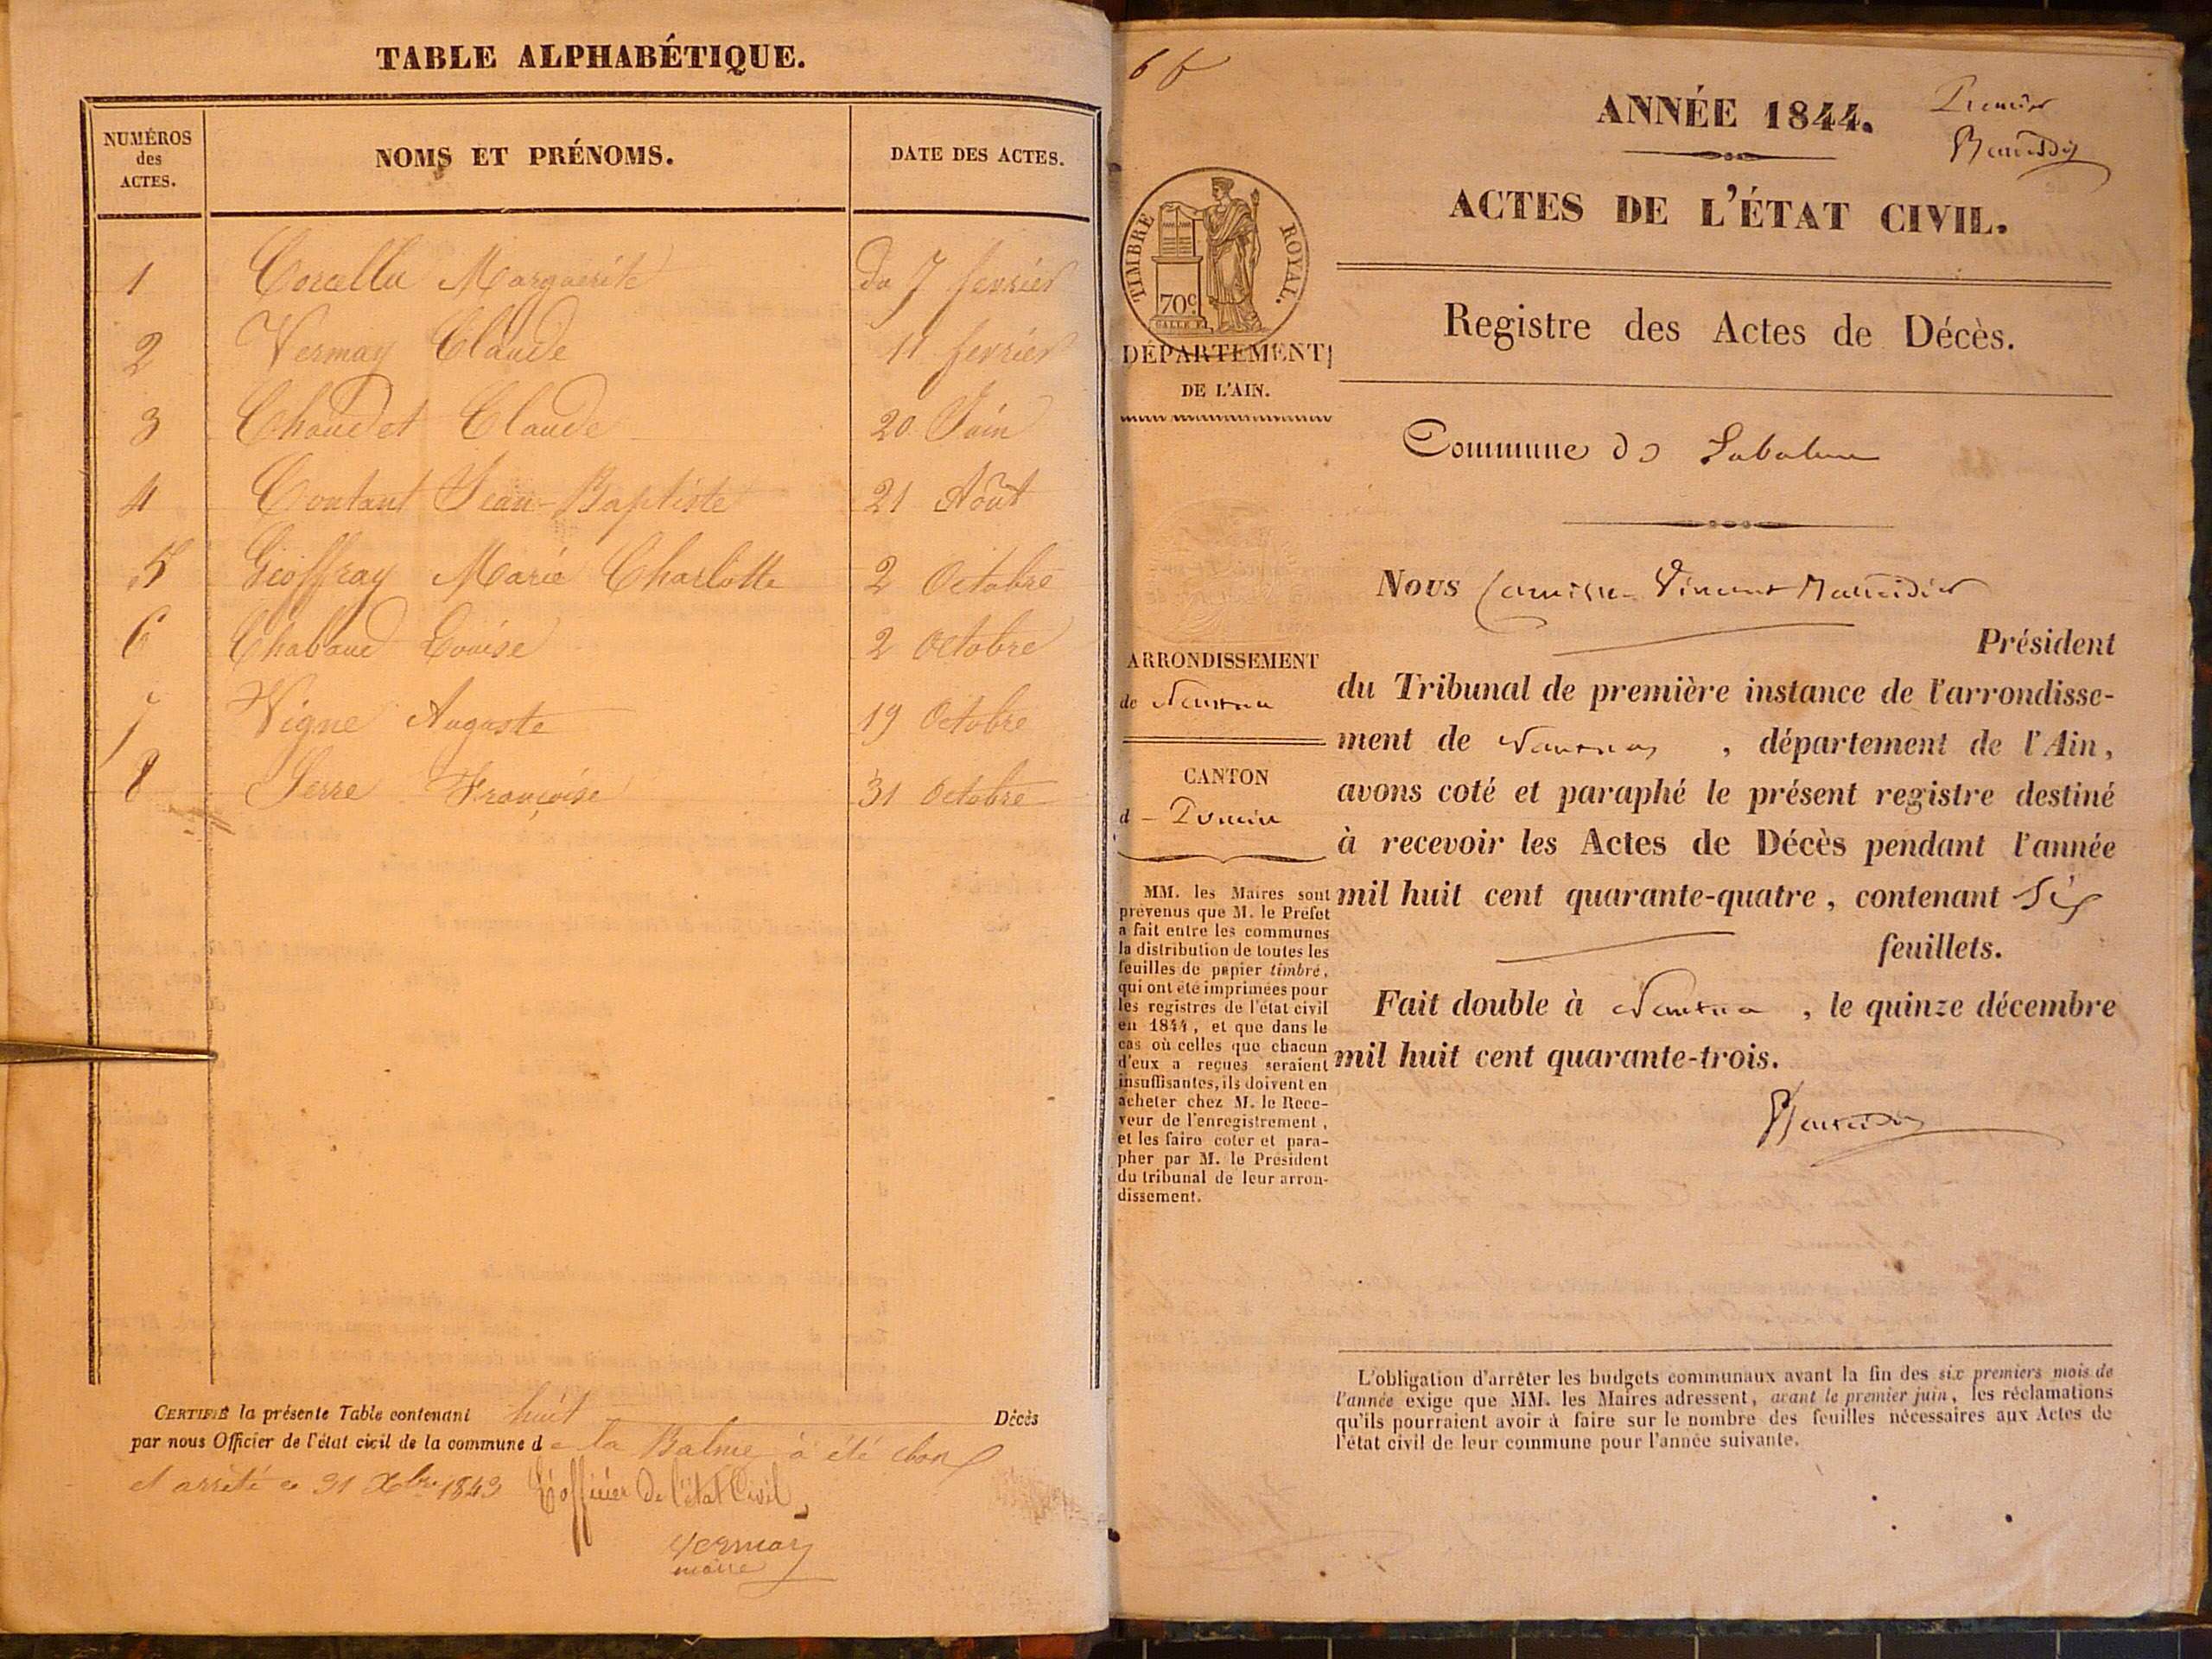 TABLE ALPHABÉTIQUE.
NUMÉROS des ACTES.
NOMS ET PRÉNOMS.
DATE DES ACTES.
1 Corcellu Marguerite du 7 fevrier
2 Vermay Claude 11 fevrier
3 Chaudet Claude 20 Juin
4 Contant Jean-Baptiste 21 Aôut
5 Geoffray Marie Charlotte 2 Octobre
6 Chaband Louise 2 Octobre
7 Vigne Auguste 19 Octobre
8 Serre Françoise 31 Octobre
CERTIFIÉ la présente Table contenant huit Décès
par nous Officier de l'état civil de la commune de la Balme à été
et arrêté ce 31 Xbre 1843 L'officier De l'état Civil,
Vermay
maire
6 f
ANNÉE 1844.
Premier
ACTES DE L'ÉTAT CIVIL.
TIMBRE ROYAL.
70c
DÉPARTEMENT
DE L'AIN.
Registre des Actes de Décès.
Commune de Labalme
Nous Vincent
Président
ARRONDISSEMENT
de Nantua
du Tribunal de première instance de l'arrondisse-
ment de Nantua, département de l'Ain,
CANTON
d Poncin
avons coté et paraphé le présent registre destiné
à recevoir les Actes de Décès pendant l'année
mil huit cent quarante-quatre, contenant Six
feuillets.
Fait double à Nantua, le quinze décembre
mil huit cent quarante-trois.
MM. les Maires sont
prévenus que M. le Préfet
a fait entre les communes
la distribution de toutes les
feuilles de papier timbré,
qui ont été imprimées pour
les registres de l'état civil
en 1844, et que dans le
cas où celles que chacun
d'eux a reçues seraient
insuffisantes, ils doivent en
acheter chez M. le Rece-
veur de l'enregistrement,
et les faire coter et para-
pher par M. le Président
du tribunal de leur arron-
dissement.
L'obligation d'arrêter les budgets communaux avant la fin des six premiers mois de
l'année exige que MM. les Maires adressent, avant le premier juin, les réclamations
qu'ils pourraient avoir à faire sur le nombre des feuilles nécessaires aux Actes de
l'état civil de leur commune pour l'année suivante.